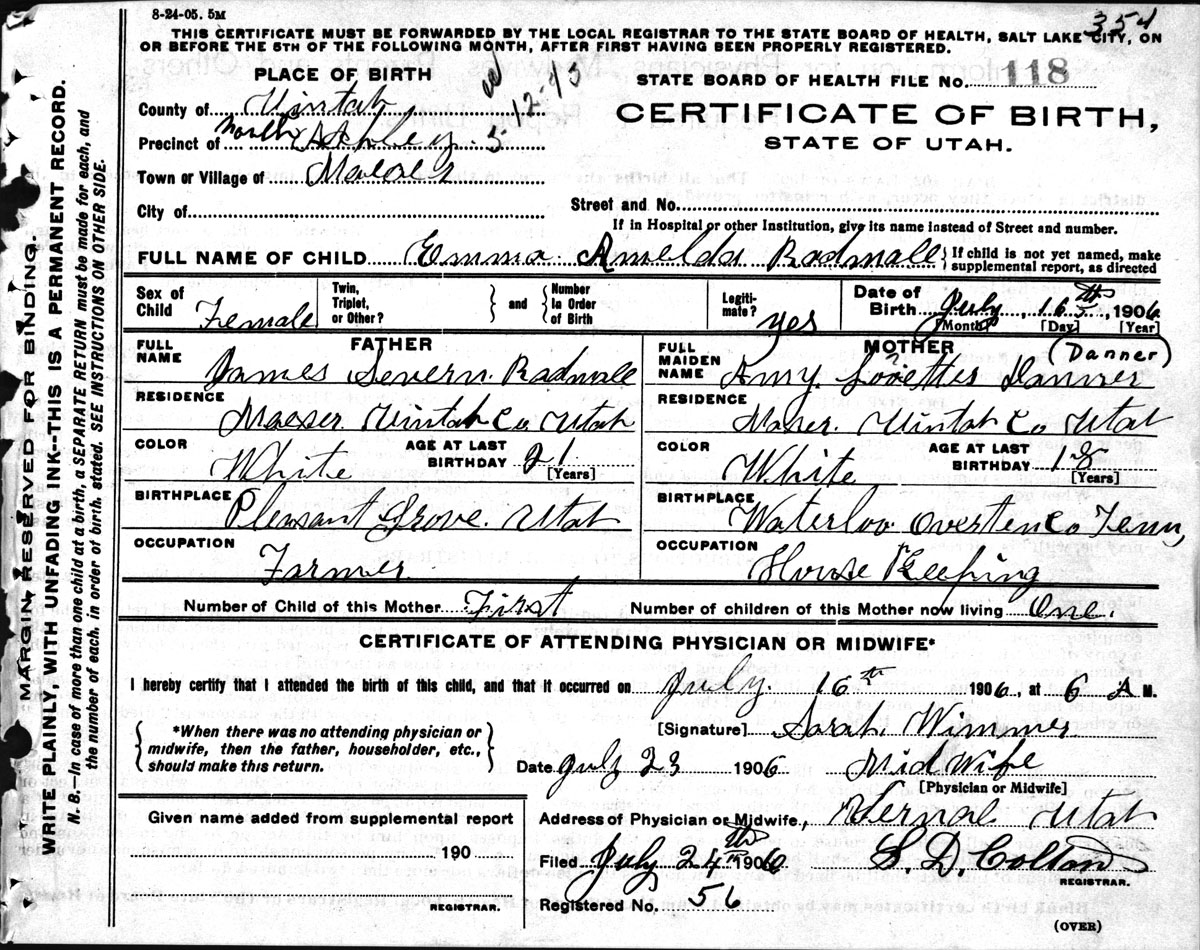 8-24-05. 5M
354
THIS CERTIFICATE MUST BE FORWARDED BY THE LOCAL REGISTRAR TO THE STATE BOARD OF HEALTH, SALT LAKE CITY, ON
OR BEFORE THE 5TH OF THE FOLLOWING MONTH, AFTER FIRST HAVING BEEN PROPERLY REGISTERED.
PLACE OF BIRTH
STATE BOARD OF HEALTH FILE No. 118
County of Uintah
12-43
CERTIFICATE OF BIRTH,
Precinct of North Ashley
STATE OF UTAH.
Town or Village of
City of
Street and No.
If in Hospital or other Institution, give its name instead of Street and number.
FULL NAME OF CHILD Emma Amelda Radmall { If child is not yet named, make
supplemental report, as directed
Sex of Child Female
Twin, Triplet, or Other? } and { Number in Order of Birth
Legiti-mate? yes
Date of Birth July 16th, 1906
[Month] [Day] [Year]
FATHER
MOTHER (Danner)
FULL NAME James Severn Radmall
FULL MAIDEN NAME Amy Danner
RESIDENCE Maeser. Uintah Co Utah
RESIDENCE Uintah Co Utah
COLOR White AGE AT LAST BIRTHDAY 21 [Years]
COLOR White AGE AT LAST BIRTHDAY 18 [Years]
BIRTHPLACE Pleasant Grove. Utah
BIRTHPLACE Waterloo Overten Co Tenn,
OCCUPATION Farmer
OCCUPATION House Keeping
Number of Child of this Mother First Number of children of this Mother now living One.
CERTIFICATE OF ATTENDING PHYSICIAN OR MIDWIFE*
I hereby certify that I attended the birth of this child, and that it occurred on July. 16th 1906, at 6 A M.
{ *When there was no attending physician or
midwife, then the father, householder, etc.,
should make this return. }
[Signature] Sarah Wimmer
Date July 23 1906 Mid Wife
[Physician or Midwife]
Given name added from supplemental report
190
REGISTRAR.
Address of Physician or Midwife, Vernal Utah
Filed July 24th 1906 S. D. Colton
REGISTRAR.
Registered No. 56
(OVER)
MARGIN RESERVED FOR BINDING.
WRITE PLAINLY, WITH UNFADING INK--THIS IS A PERMANENT RECORD.
N. B.—In case of more than one child at a birth, a SEPARATE RETURN must be made for each, and
the number of each, in order of birth, stated. SEE INSTRUCTIONS ON OTHER SIDE.